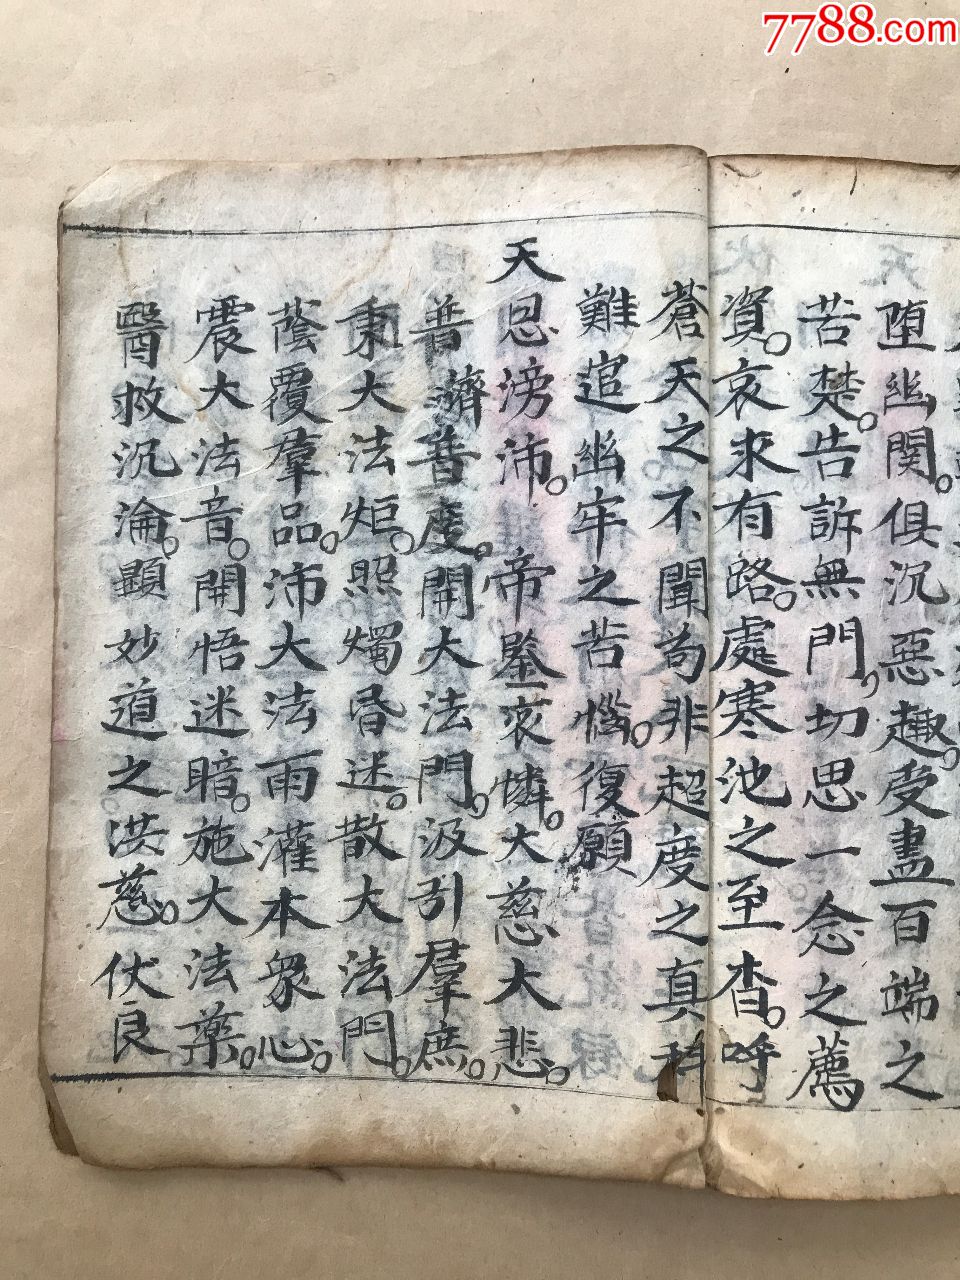 7788.com
堕幽関。俱沉惡趣。受盡百端之
苦楚。告訴無門。切思一念之薦
資。哀求有路。處寒池之至杳。呼
蒼天之不聞。苟非超度之真科
難追幽牢之苦惱。復願
天恩滂沛。帝鑒哀憐。大慈大悲。
普濟普度。開大法門。汲引羣庶。
秉大法炬。照燭昏迷。散大法門。
蔭覆羣品。沛大法雨灌本衆心。
震大法音。開悟迷暗。施大法藥。
醫救沉淪。顯妙道之洪慈。伏良